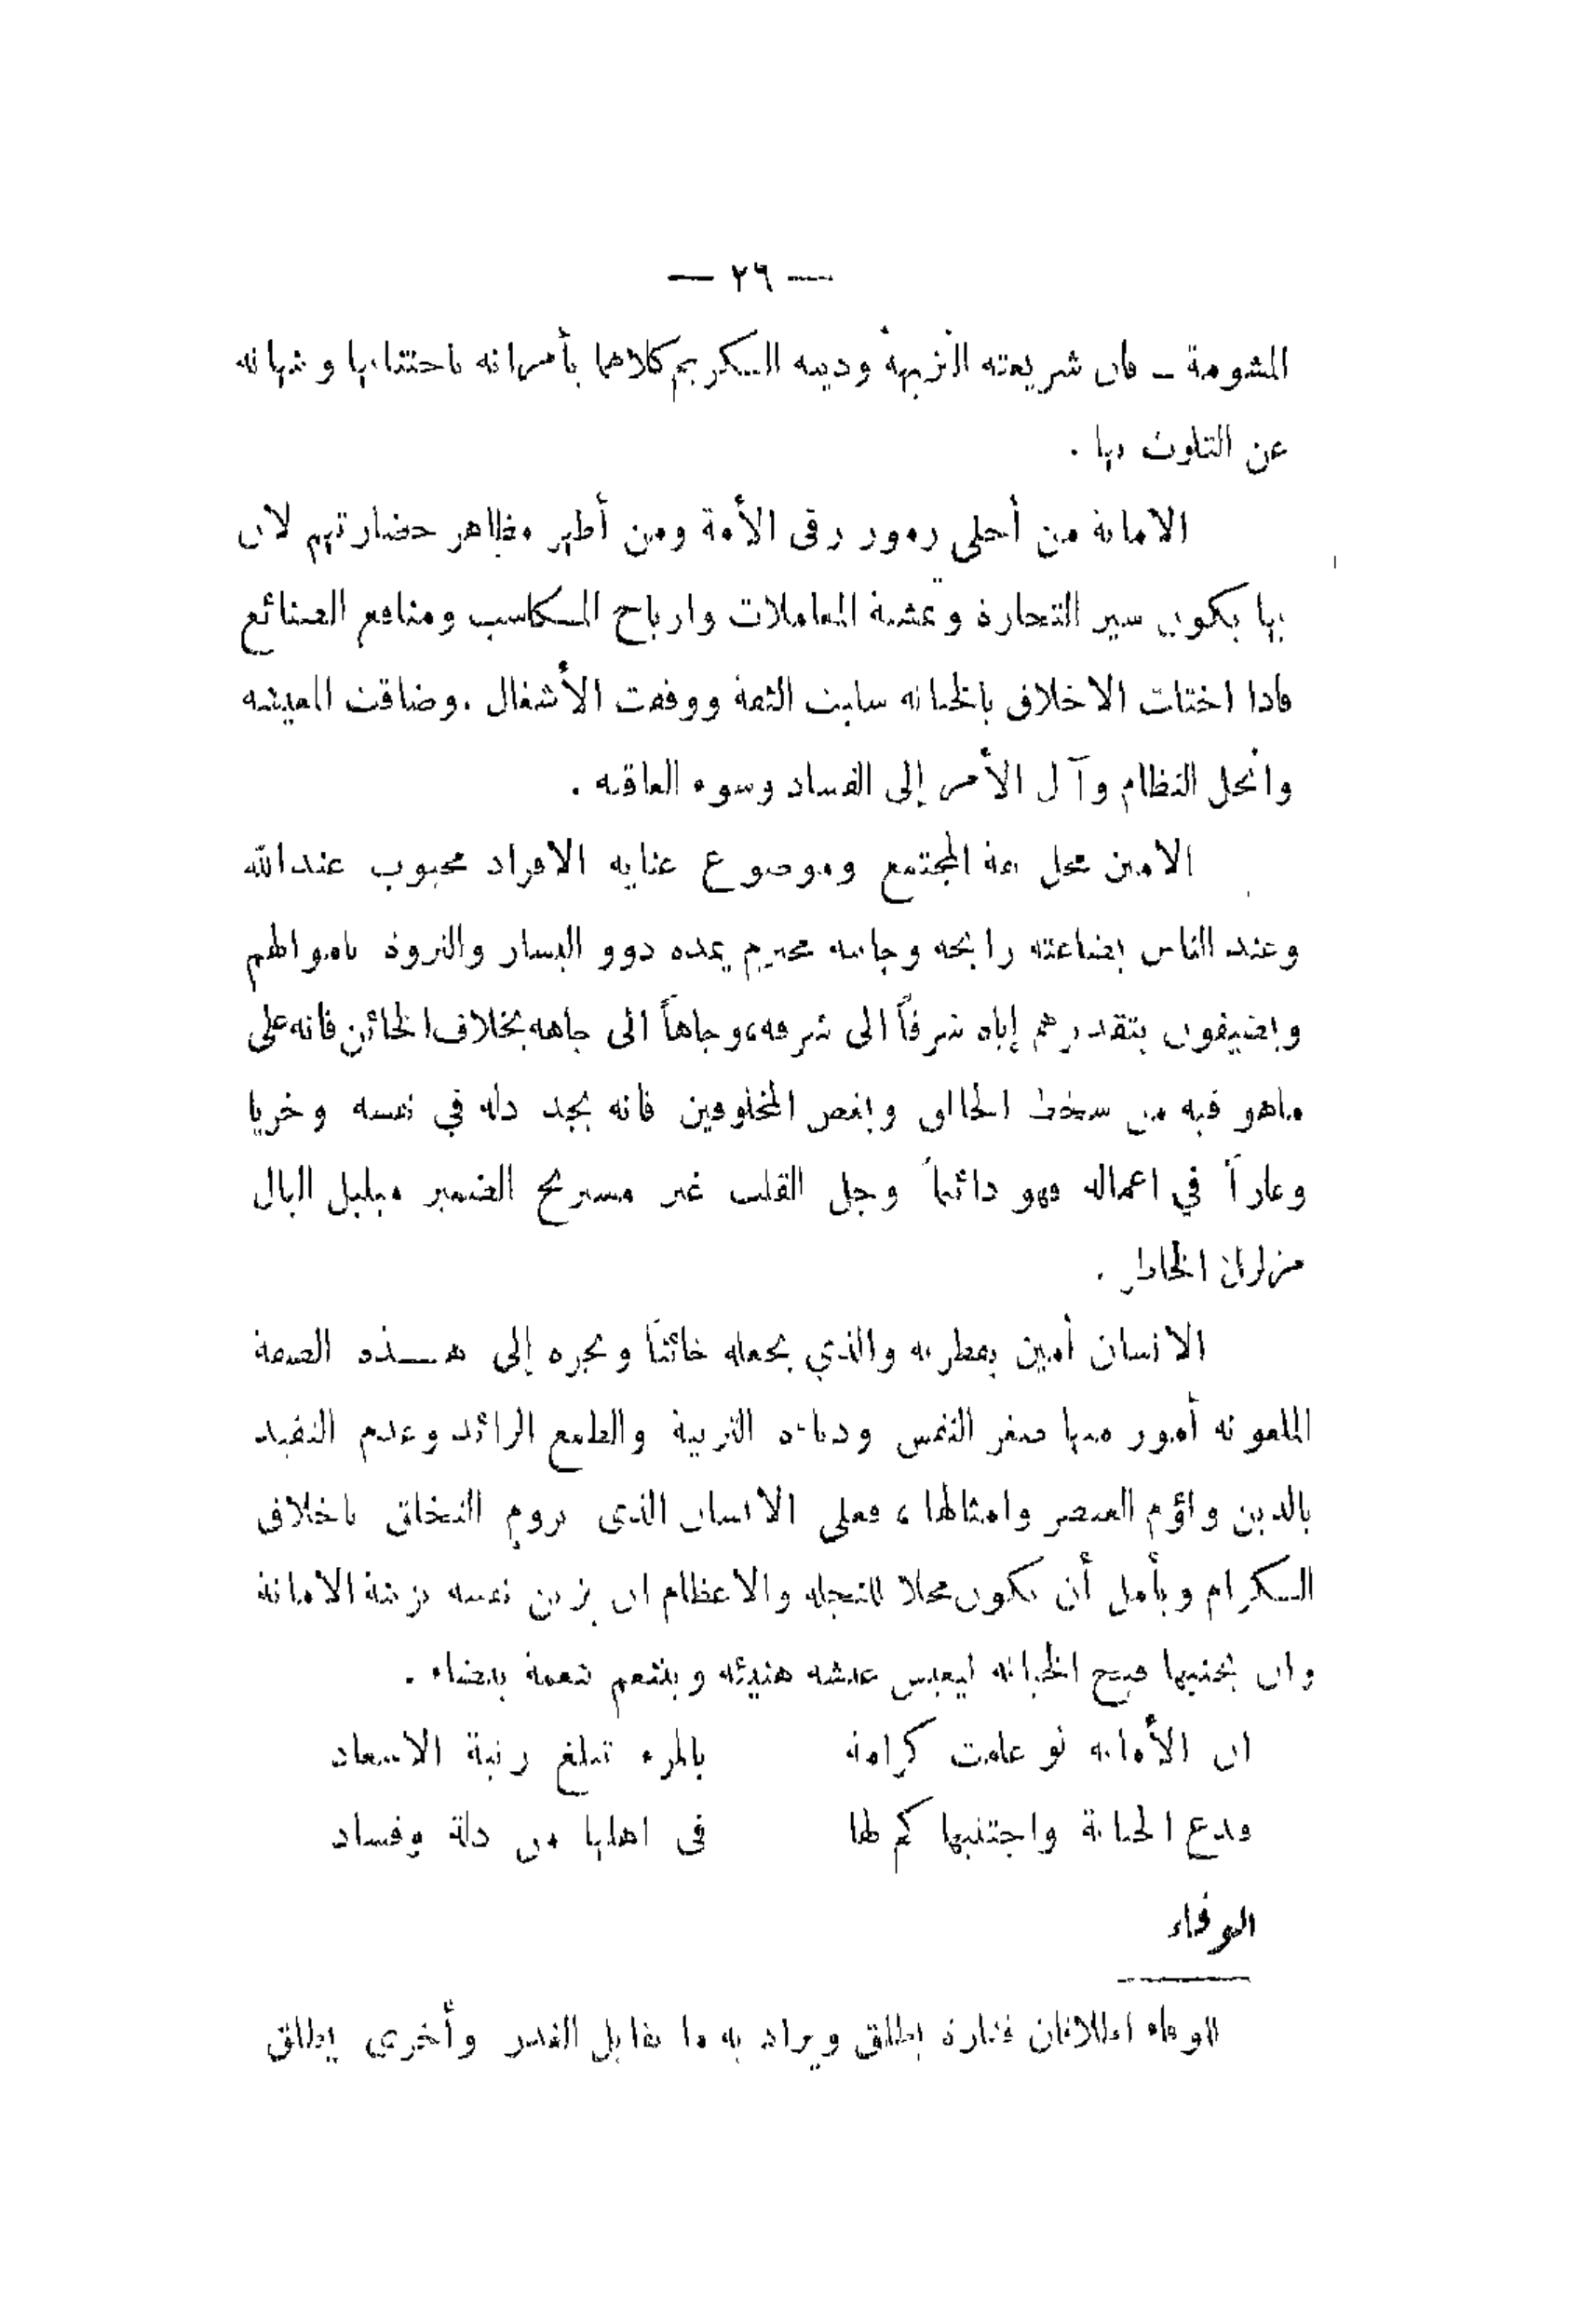 — ٢٦ —
المشومة – فان شريعته النزيهة ودينه الكريم كلاهما يأمرانه باجتنابها وينهيانه
عن التلوث بها .
الامانة من أجلى رموز رقى الأمة ومن أطهر مظاهر حضارتهم لان
بها يكون سير التجارة وتمشية المعاملات وارباح المكاسب ومنافع الصنائع
فاذا اختلت الاخلاق بالخيانة سلبت الثقة ووقفت الأشغال . وضاقت المعيشه
وانحل النظام وآل الأمر إلى الفساد وسوء العاقبه .
الامين محل ثقة المجتمع وموضوع عنايه الافراد محبوب عند الله
وعند الناس بضاعته رابحه وجانبه محترم يمده ذوو اليسار والثروة باموالهم
ويضيفون بتقديرهم إياه شرفاً الى شرفه، وجاهاً الى جاهه بخلاف الخائن فانه على
ماهو فيه من سخط الخالق وبغض المخلوقين فانه يجد ذله في نفسه وخزيا
وعاراً في اعماله فهو دائماً وجل القلب غير مستريح الضمير مبلبل البال
متزلزل الخاطر .
الانسان أمين بفطرته والذي يجعله خائناً ويجره إلى هذه الصفة
الملعونه أمور منها صغر النفس ودناءة التربية والطمع الزائد وعدم التقيد
بالدين ولؤم العنصر وامثالها، فعلى الانسان الذى يروم التخلق باخلاق
الكرام ويأمل أن يكون محلا للتجله والاعظام ان يزين نفسه بزينة الامانة
وان يجنبها قبيح الخيانه ليعيش عيشه هنيئه ويتنعم بنعمة بيضاء .
ان الأمانه لو علمت كرامة بالمرء تبلغ رتبة الاسعاد
ودع الخيانة واجتنبها كم لها فى اهلها من ذلة وفساد
الوفاء
للوفاء اطلاقان فتارة يطلق ويراد به ما يقابل الغدر وأخرى يطلق